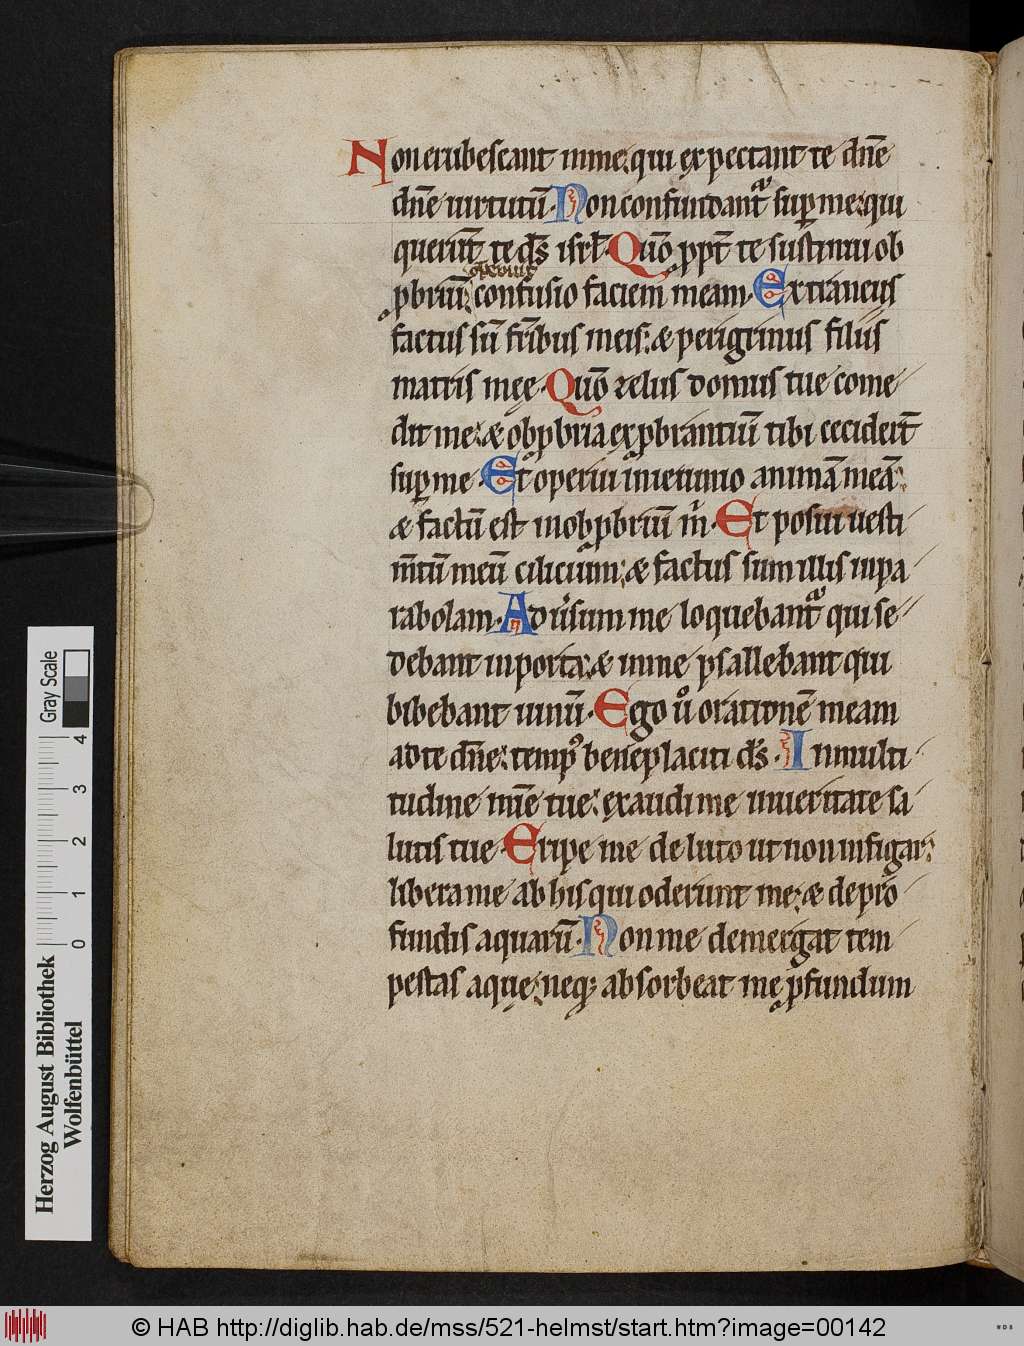 Non erubescant in me: qui expectant te dn̄e
dn̄e uirtutū. Non confundant᷑ sup̄ me: qui
querūt te ds̄ isrl̄. Quō ꝓpt̄ te sustinui ob
operuit
ꝓbriū: confusio faciem meam. Extraneus
factus sū fr̄ibus meis: & perigrinus filiis
matris meę. Quō zelus domus tue come
dit me: & obꝓbria exꝓbrantiū tibi cecidert̄
sup̄ me. Et operui in ieiunio animā meā:
& factū est in obꝓbriū m̄. Et posui uesti
m̄tū meū cilicium: & factus sum illis in pa
rabolam. Aduˀsum me loquebant᷑ qui se
debant in porta: & in me psallebant qui
bibebant uinū. Ego uͦ orationē meam
ad te dn̄e: tempꝰ beneplaciti ds̄. In multi
tudine mīe tue: exaudi me in ueritate sa
lutis tue. Eripe me de luto ut non infigar:
libera me ab his qui oderunt me: & de pro
fundis aquarū. Non me demergat tem
pestas aquę: neq; absorbeat me ꝓfundum
Herzog August Bibliothek
Wolfenbüttel
0 1 2 3 4
Gray Scale
© HAB http://diglib.hab.de/mss/521-helmst/start.htm?image=00142